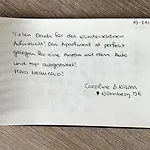 Vielen Dank für den wunderschönen
Aufenthalt! Das Apartment ist perfekt
gelegen für eine Anreise mit dem Auto
und top ausgestattet!
Merci beaucoup!
Caroline &
Nürnberg, DE